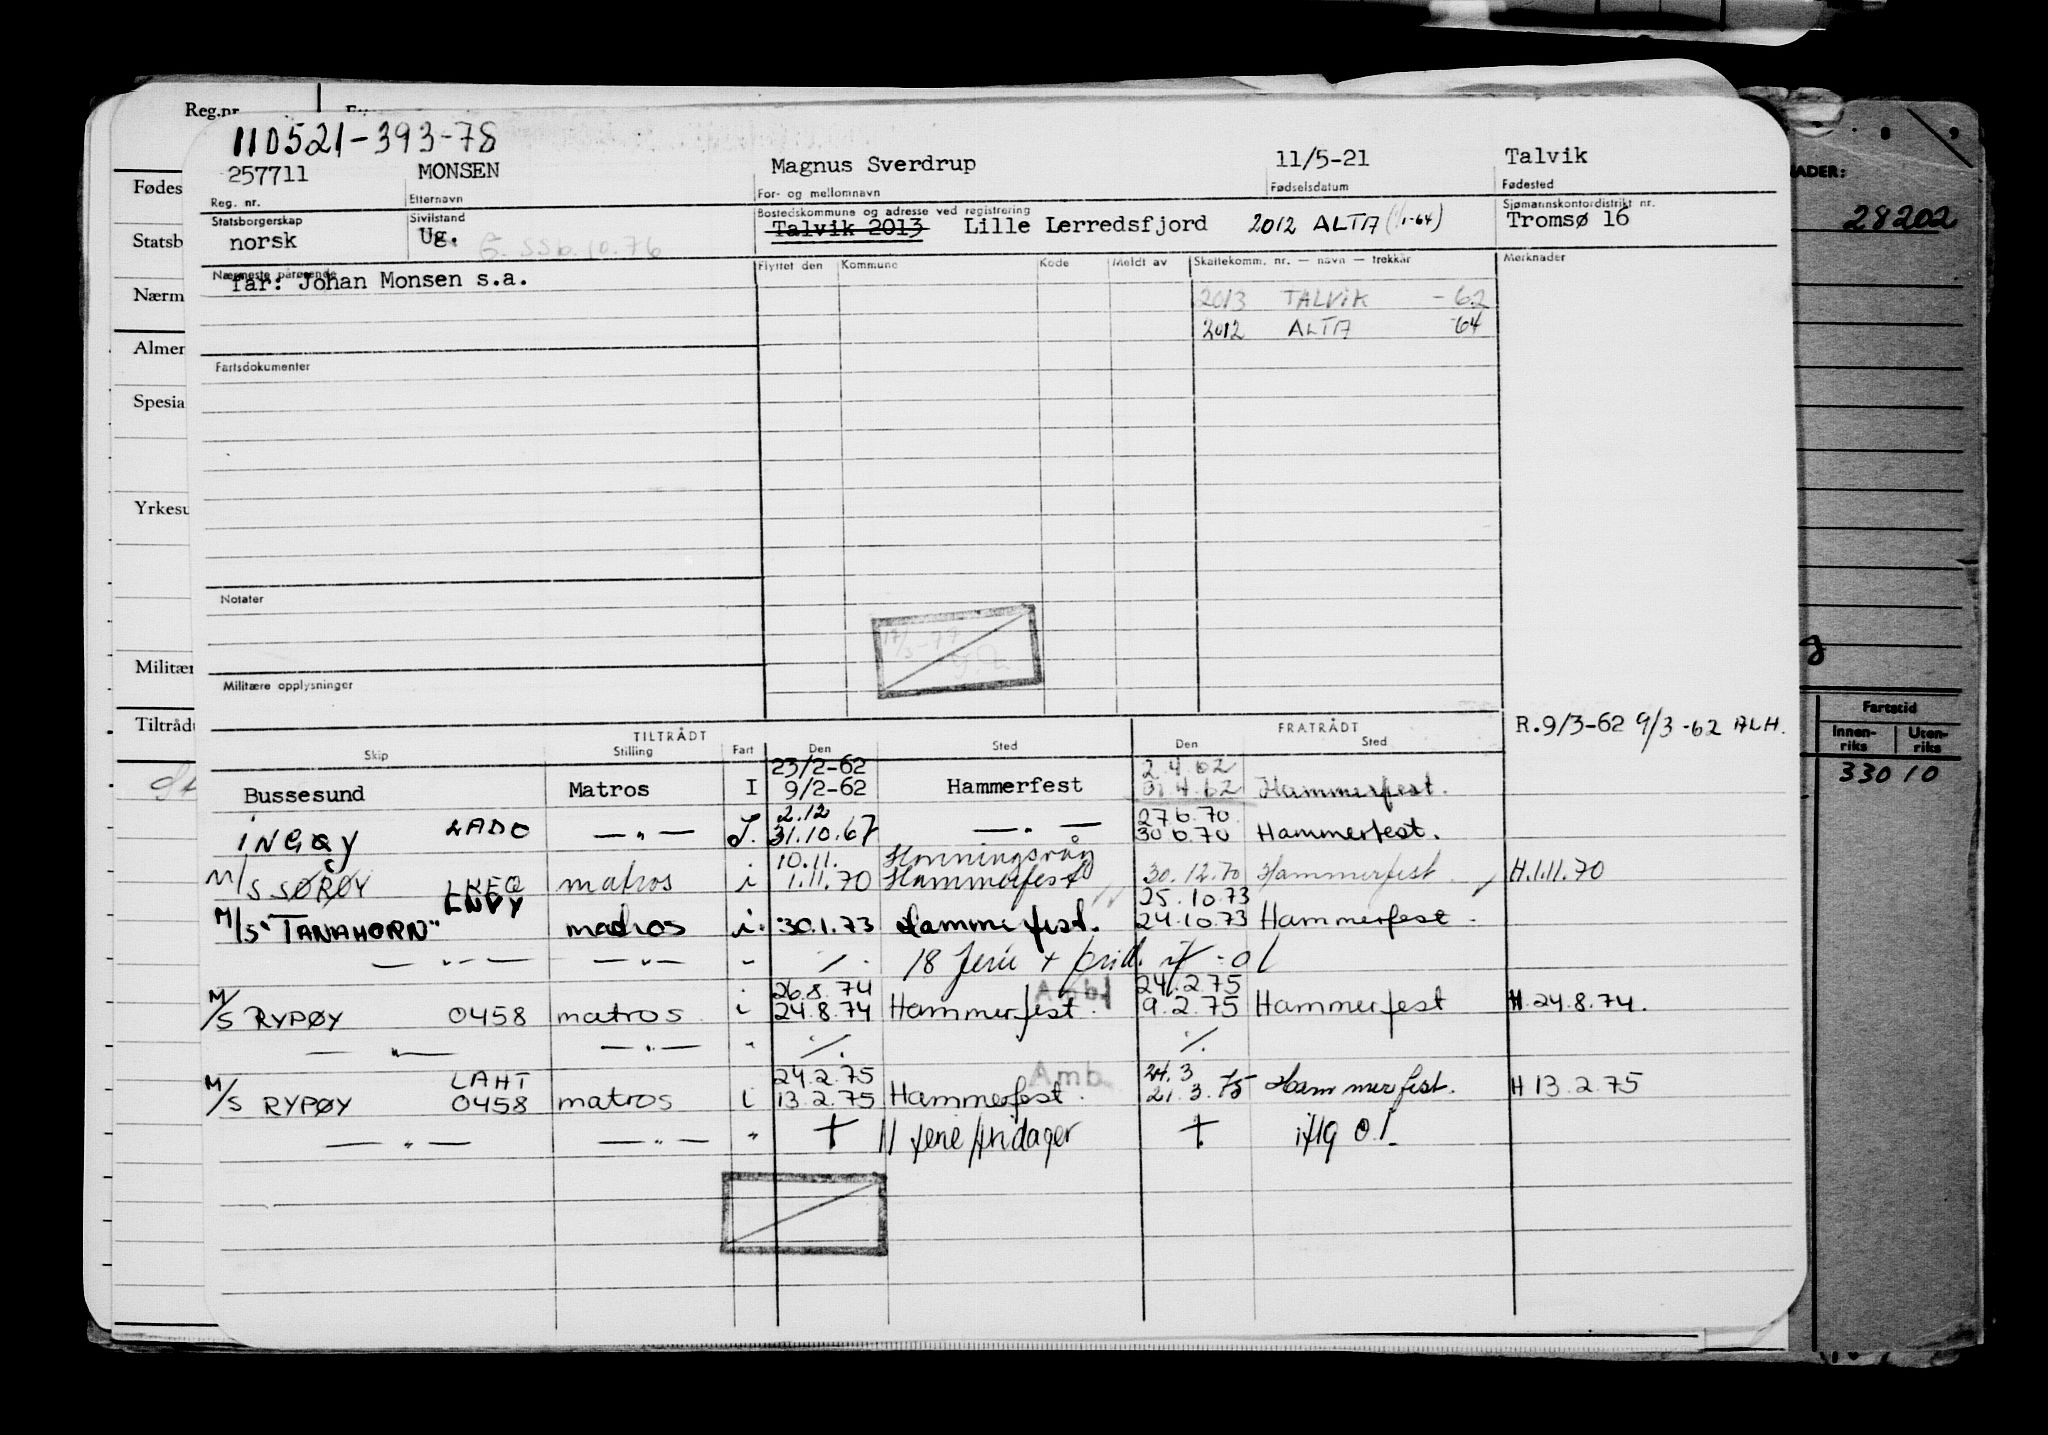 Reg.nr
110521-393-78
257711 MONSEN Magnus Sverdrup 11/5-21 Talvik
Reg. nr. Etternavn For- og mellomnavn Fødselsdatum Fødested
Statsborgerskap Sivilstand Bostedskommune og adresse ved registrering Sjømannskontordistrikt nr.
norsk Ug. Talvik 2013 Lille Lerredsfjord 2012 ALTA (1/1-64) Tromsø 16
Nærmeste pårørende Flyttet den Kommune Kode Meldt av Skattekomm. nr. — navn — trekkår Merknader
far: Johan Monsen s.a.
2013 TALVIK -62
2012 ALTA 64
Fartsdokumenter
Notater
Militære opplysninger
TILTRÅDT FRATRÅDT
R.9/3-62 9/3-62 ALH.
Skip Stilling Fart Den Sted Den Sted
23/2-62 2.4.62
Bussesund Matros I 9/2-62 Hammerfest 31.4.62 Hammerfest.
2.12 27.6.70
INGØY LADO — " — I. 31.10.67 — " — 30.6.70 Hammerfest.
10.11. Honningsvåg
M/S SØRØY LKEQ matros i 1.11.70 Hammerfest 30.12.70 Hammerfest H.1.11.70
25.10.73
M/S "TANAHORN" LNDY matros i. 30.1.73 Hammerfest. 24.10.73 Hammerfest.
— " — — " — " 18 ferie +
26.8.74 Amb 24.2.75
M/S RYPØY 0458 matros i 24.8.74 Hammerfest. 9.2.75 Hammerfest H.24.8.74.
— " — — " — "
LAHT 24.2.75 Amb. 24.3
M/S RYPØY 0458 matros i 13.2.75 Hammerfest. 21.3.75 Hammerfest. H 13.2.75
— " — — " — " + 11 ferie/fridager +
Fødes
Statsb
Nærm
Almer
Spesia
Yrkesu
Militær
Tiltråd
ADER:
28202
Fartstid
Innen-riks Uten-riks
330 10